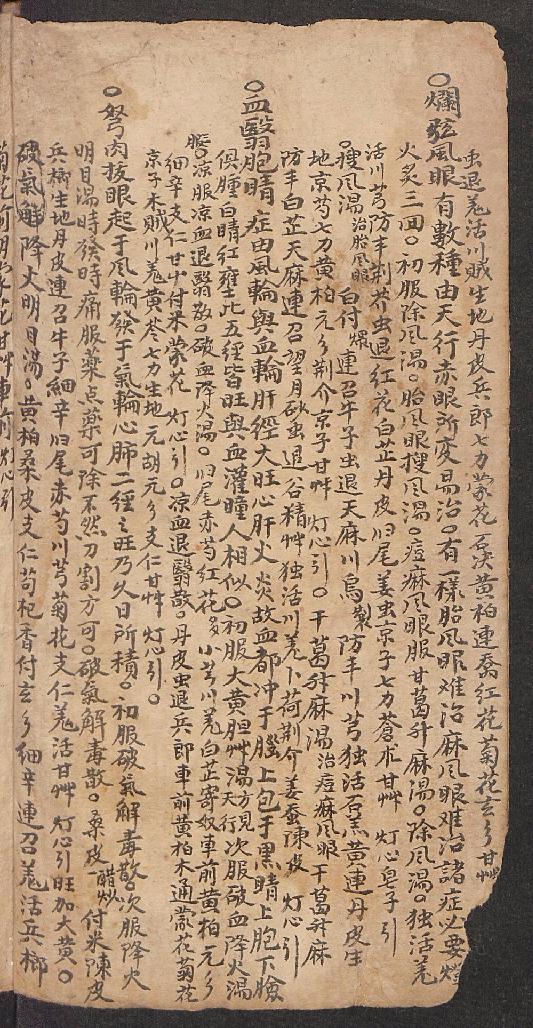 虫退羌活川賊生地丹皮兵郎七力蒙花黄柏連喬紅花菊花玄乡甘艸
〇爛弦風眼有數種由天行赤眼所变易治〇有一樣胎風眼难治麻風眼难治諸症必要燈
火炙三回〇初服除風湯〇胎風眼搜風湯〇痘麻風眼服甘葛升麻湯〇除風湯〇独活羌
活川芎防丰荆芥虫退紅花白芷丹皮归尾姜虫京子七力蒼朮甘艸 灯心皂子引
〇搜風湯治胎風眼白付連召牛子虫退天麻川烏製防丰川芎独活石羔黄連丹皮生
地京芍七力黄柏元乡荆介京子甘艸 灯心引〇干葛升麻湯治痘麻風眼干葛升麻
防丰白芷天麻連召望月砂虫退谷精艸独活川羌卜荷荆介姜蚕陳皮 灯心引
〇血翳胞睛 症由風輪與血輪肝經大旺心肝火炎故血都冲于腦上包于黒睛上胞下瞼
俱腫白睛紅壅此五經皆旺與血灌瞳人相似〇初服大黄胆艸湯方見天行次服破血降火湯
〇凉服凉血退翳散〇破血降火湯〇归尾赤芍紅花多小芐川羌白芷寄奴車前黄柏元乡
細辛支仁甘中付米蒙花 灯心引〇凉血退翳散〇丹皮虫退兵郎車前黄柏木通蒙花菊花
京子木賊川羌黄芩七力生地元胡元乡支仁甘艸 灯心引〇
〇弩肉扳眼起于風輪發于氣輪心肺二經之旺乃久日所積〇初服破氣解毒散〇次服降火
明目湯時發時痛服藥点藥可除不然刀割方可〇破氣解毒散〇桑皮醋炒付米陳皮
兵榔生地丹皮連召牛子細辛归尾赤芍川芎菊花支仁羌活甘艸 灯心引旺加大黄〇
破氣解降火明目湯〇黄柏桑皮支仁苟杞香付玄乡細辛連召羌活兵榔